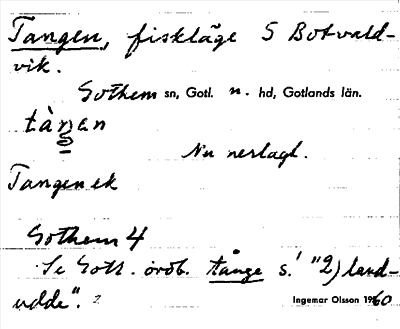 Tangen, fiskläge S Botvald-
vik.
Gothem sn, Gotl. n. hd, Gotlands län.
tàŋen
Nu nerlagt.
Tangen ek
Gothem 4
Se Gotl. ordb. tånge s.¹ "2) land-
udde". ?
Ingemar Olsson 1960